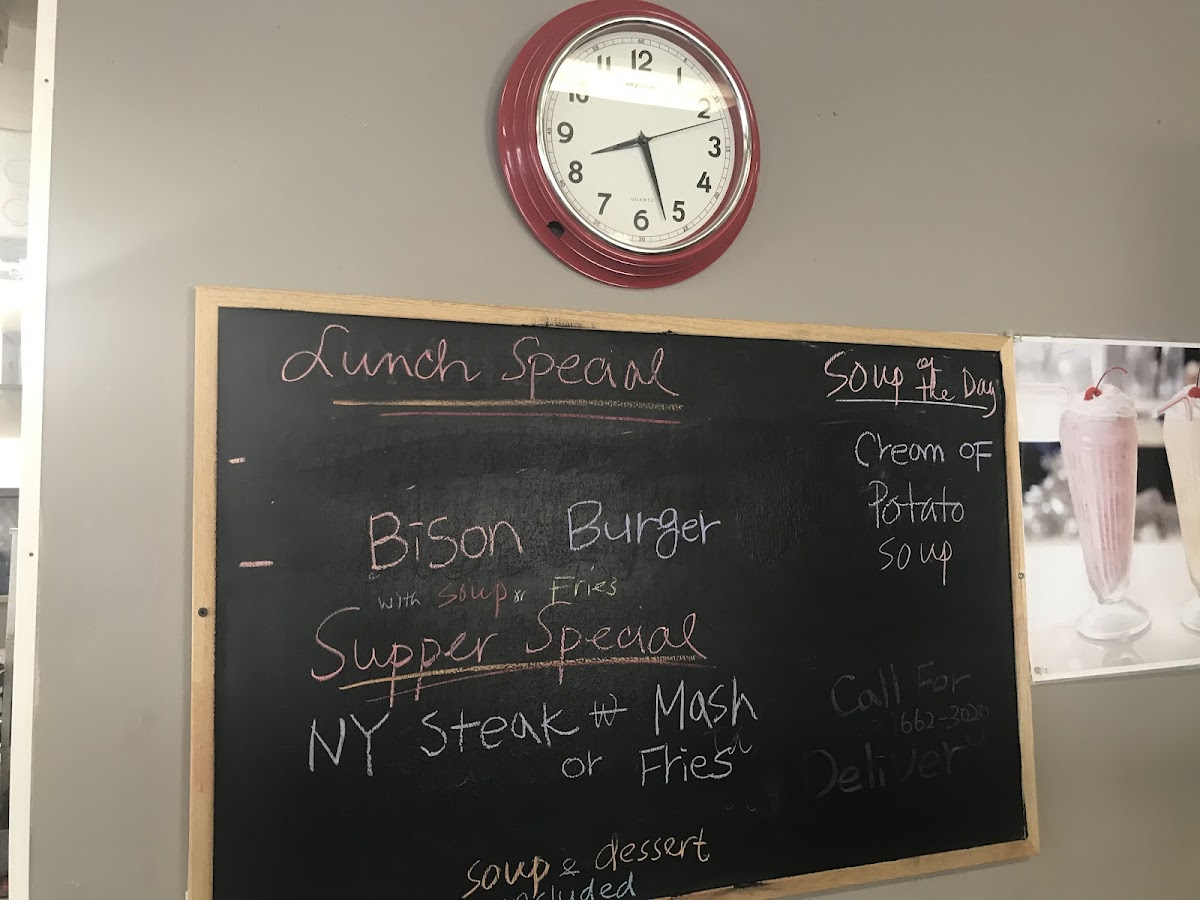 12
1
2
3
4
5
6
7
8
9
10
11
QUARTZ
Lunch Special
Bison Burger
with soup or Fries
Supper Special
NY Steak w Mash
or Fries
soup & dessert
included
Soup of the Day
Cream OF
Potato
soup
Call For
662-3020
Delivery